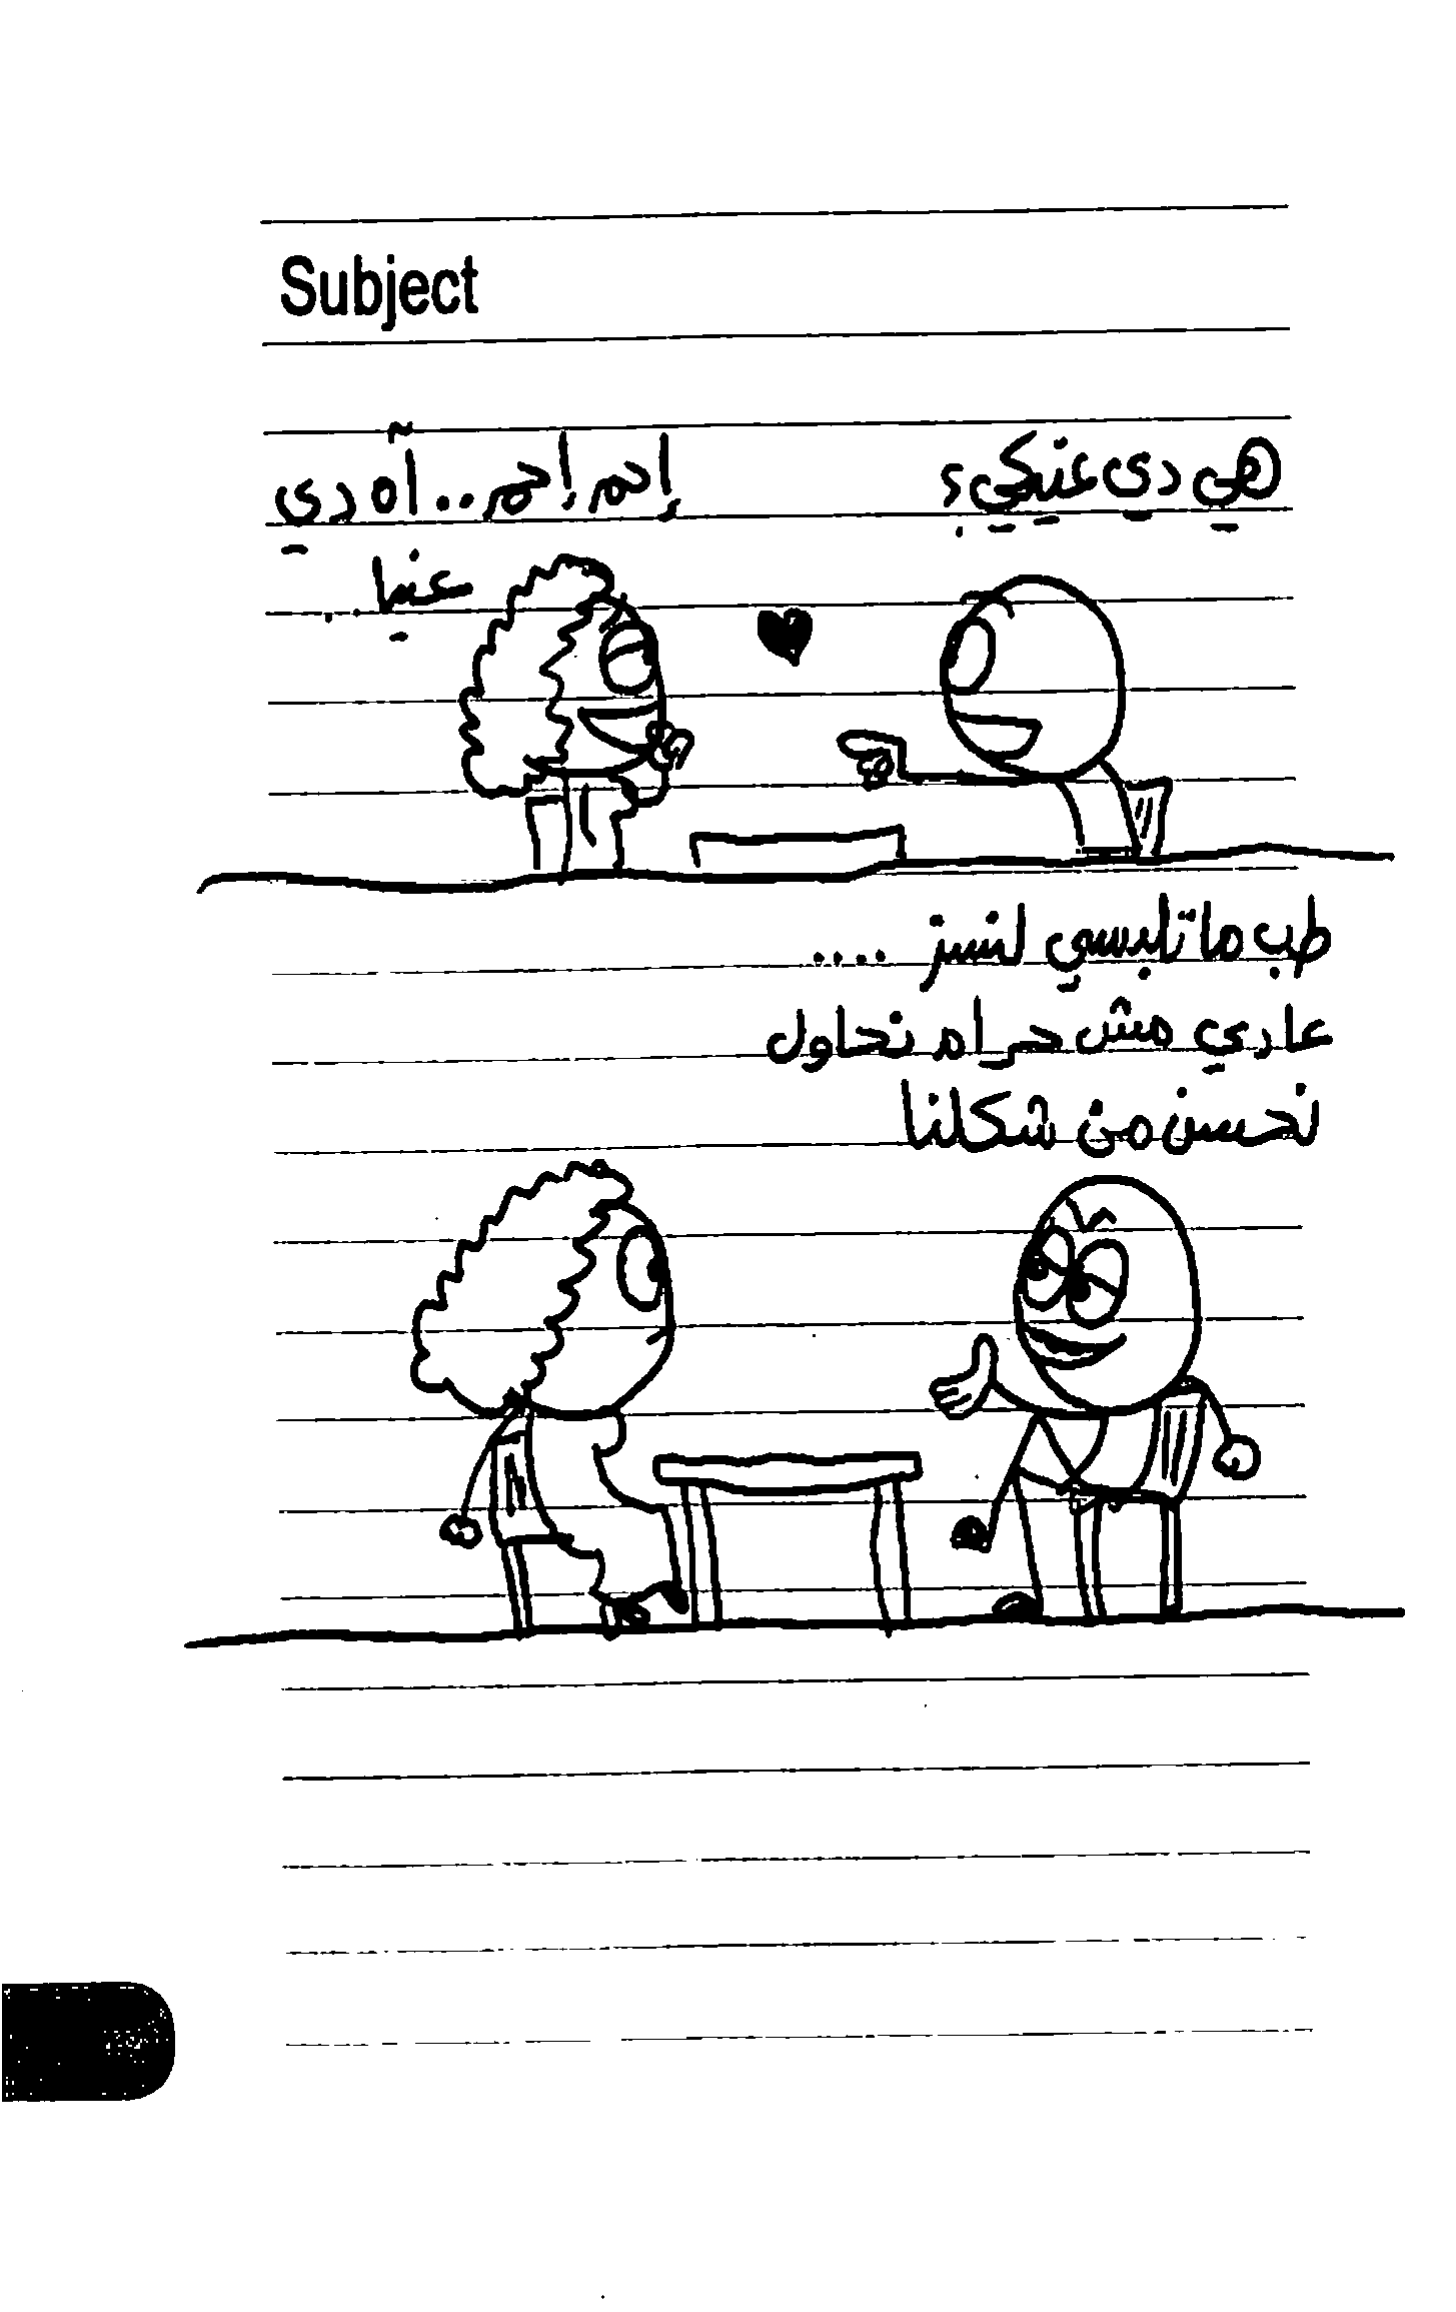 Subject
هي دي عنيكي؟
إحم إحم.. آه دي
عنيا..
طب ما تلبسي لنسز ....
عادي مش حرام نحاول
نحسن من شكلنا